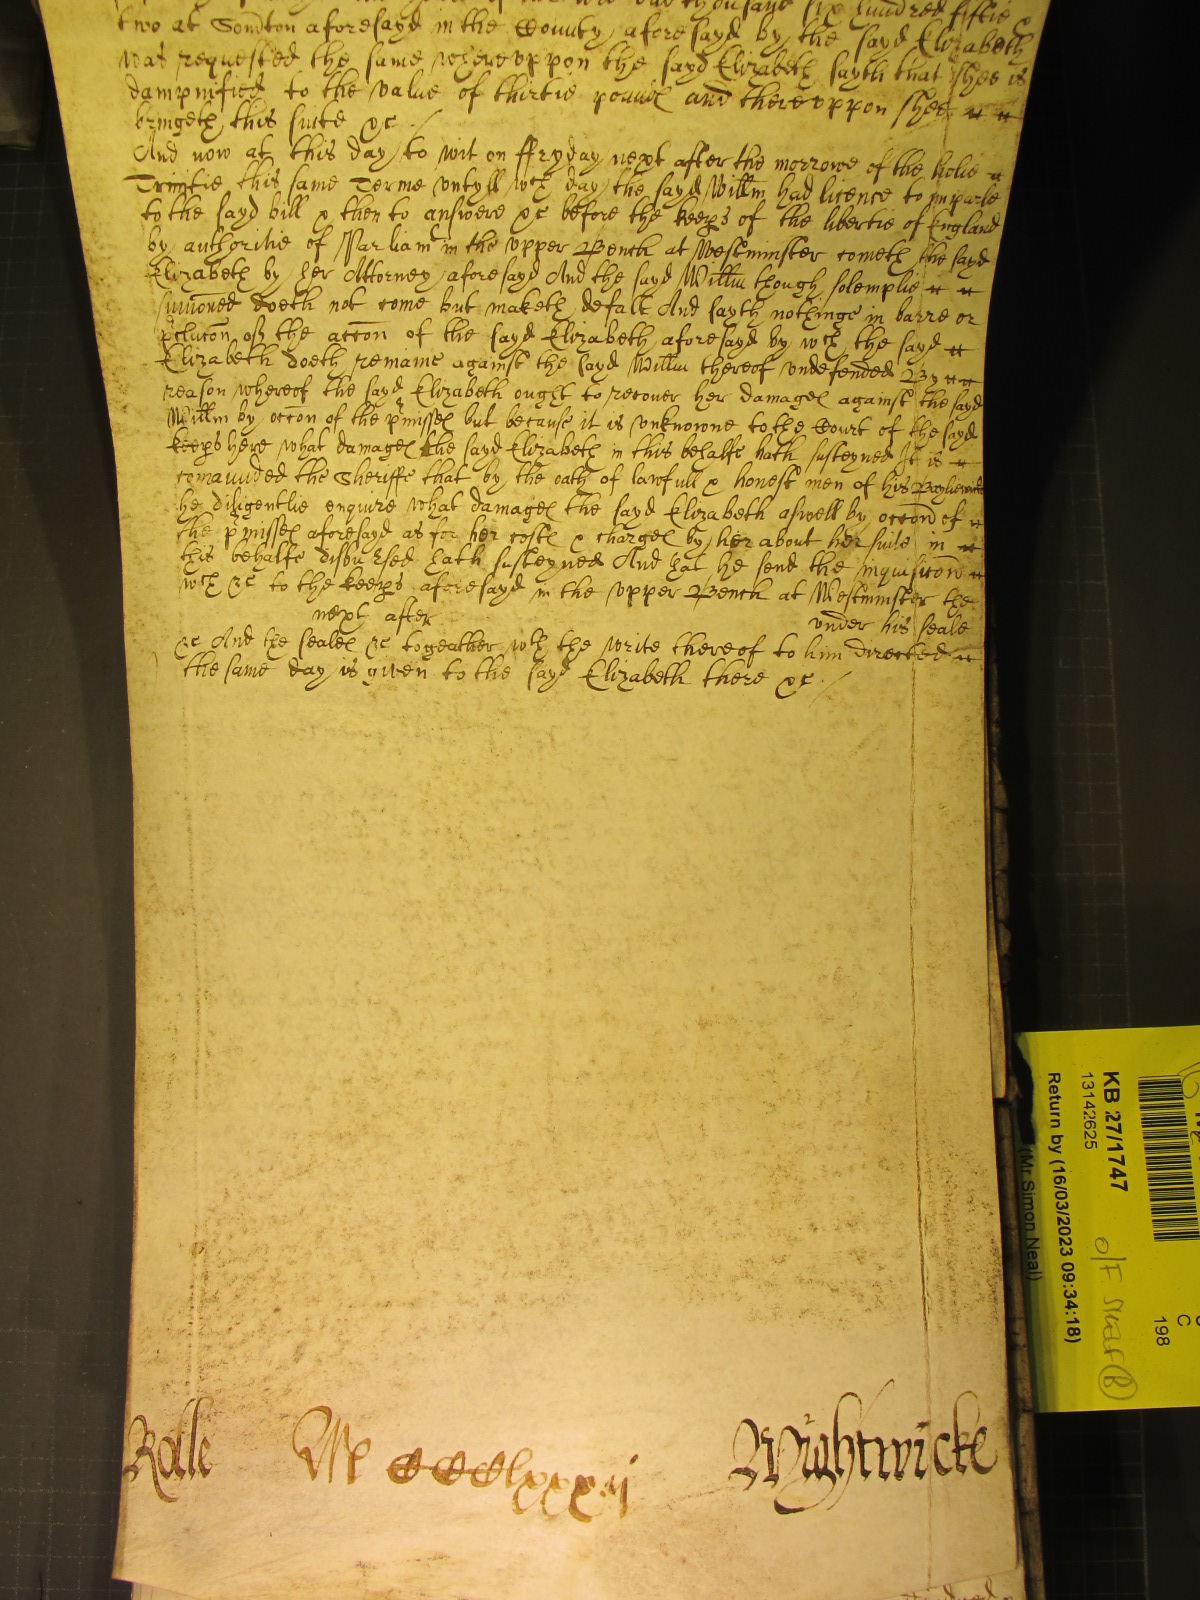 thousand six hundred fiftie
two at Sondton aforesayd in the County aforesayd by the sayd Elizabeth
was requested the same whereuppon the sayd Elizabeth sayth that shee is
dampnified to the value of thirtie pound and thereuppon shee
bringeth this suite &c
And now at this day to wit on ffryday next after the morrowe of the holie
Trinitie this same Terme untyll wch day the sayd Willm had licence to imparle
to the sayd bill & then to answere &c before the keeps of the libertie of England
by authoritie of Parliamt in the upper Bench at Westminster cometh the sayd
Elizabeth by her Attorney aforesayd And the sayd Willm though solemplie
sumoned doeth not come but maketh default And sayth nothinge in barre or
pclucon of the accon of the sayd Elizabeth aforesayd by wch the sayd
Elizabeth doeth remaine against the sayd Willm thereof undefended By
reason whereof the sayd Elizabeth ought to recover her damages against the sayd
Willm by occon of the pmisses but because it is unknowne to the Court of the sayd
keeps here what damages the sayd Elizabeth in this behalfe hath susteyned It is
comaunded the Sheriffe that by the oath of lawfull & honest men of his Bayliewick
he diligentlie enquire what damages the sayd Elizabeth aswell by occon of
the pmisses aforesayd as for her costs & charges by her about her suite in
this behalfe disbursed hath susteyned And that he send the inquisicon
wch &c to the keeps aforesayd in the upper Bench at Westminster the
next after under his seale
&c And the seales &c togeather wth the write thereof to him directed
the same day is given to the sayd Elizabeth there &c
Rolle M CCCClxxxij Wightwicke
KB 27/1747
13142625
Return by (16/03/2023 09:34:18)
(Mr Simon Neal)
C
198
O/F